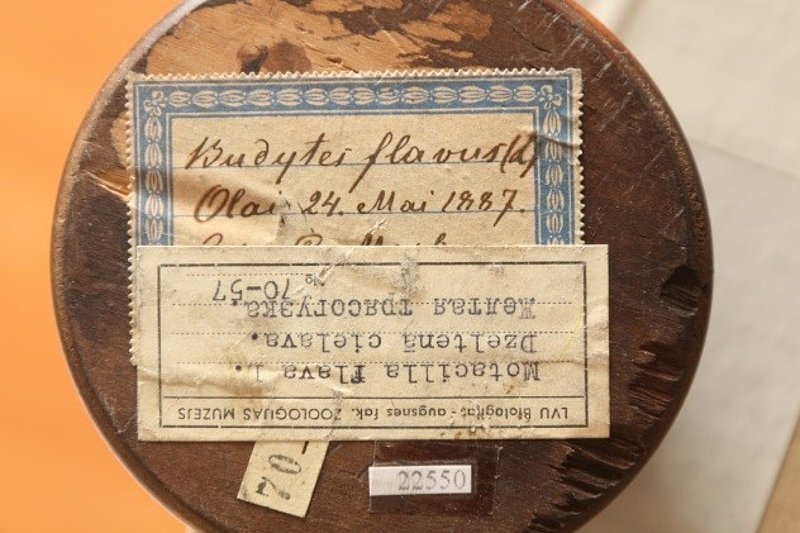 Budytes flavus (L)
Olai 24. Mai 1887.
LVU Bioloģijas - augsnes fak. ZOOLOĢIJAS MUZEJS
Motacilla flava L.
Dzeltenā cielava.
Желтая трясогузка.
№ 70-57
70-
22550